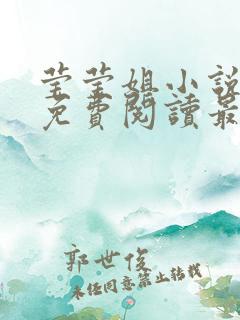 莹莹姐小說
免費閱讀最
郭世俊
未经同意禁止转载